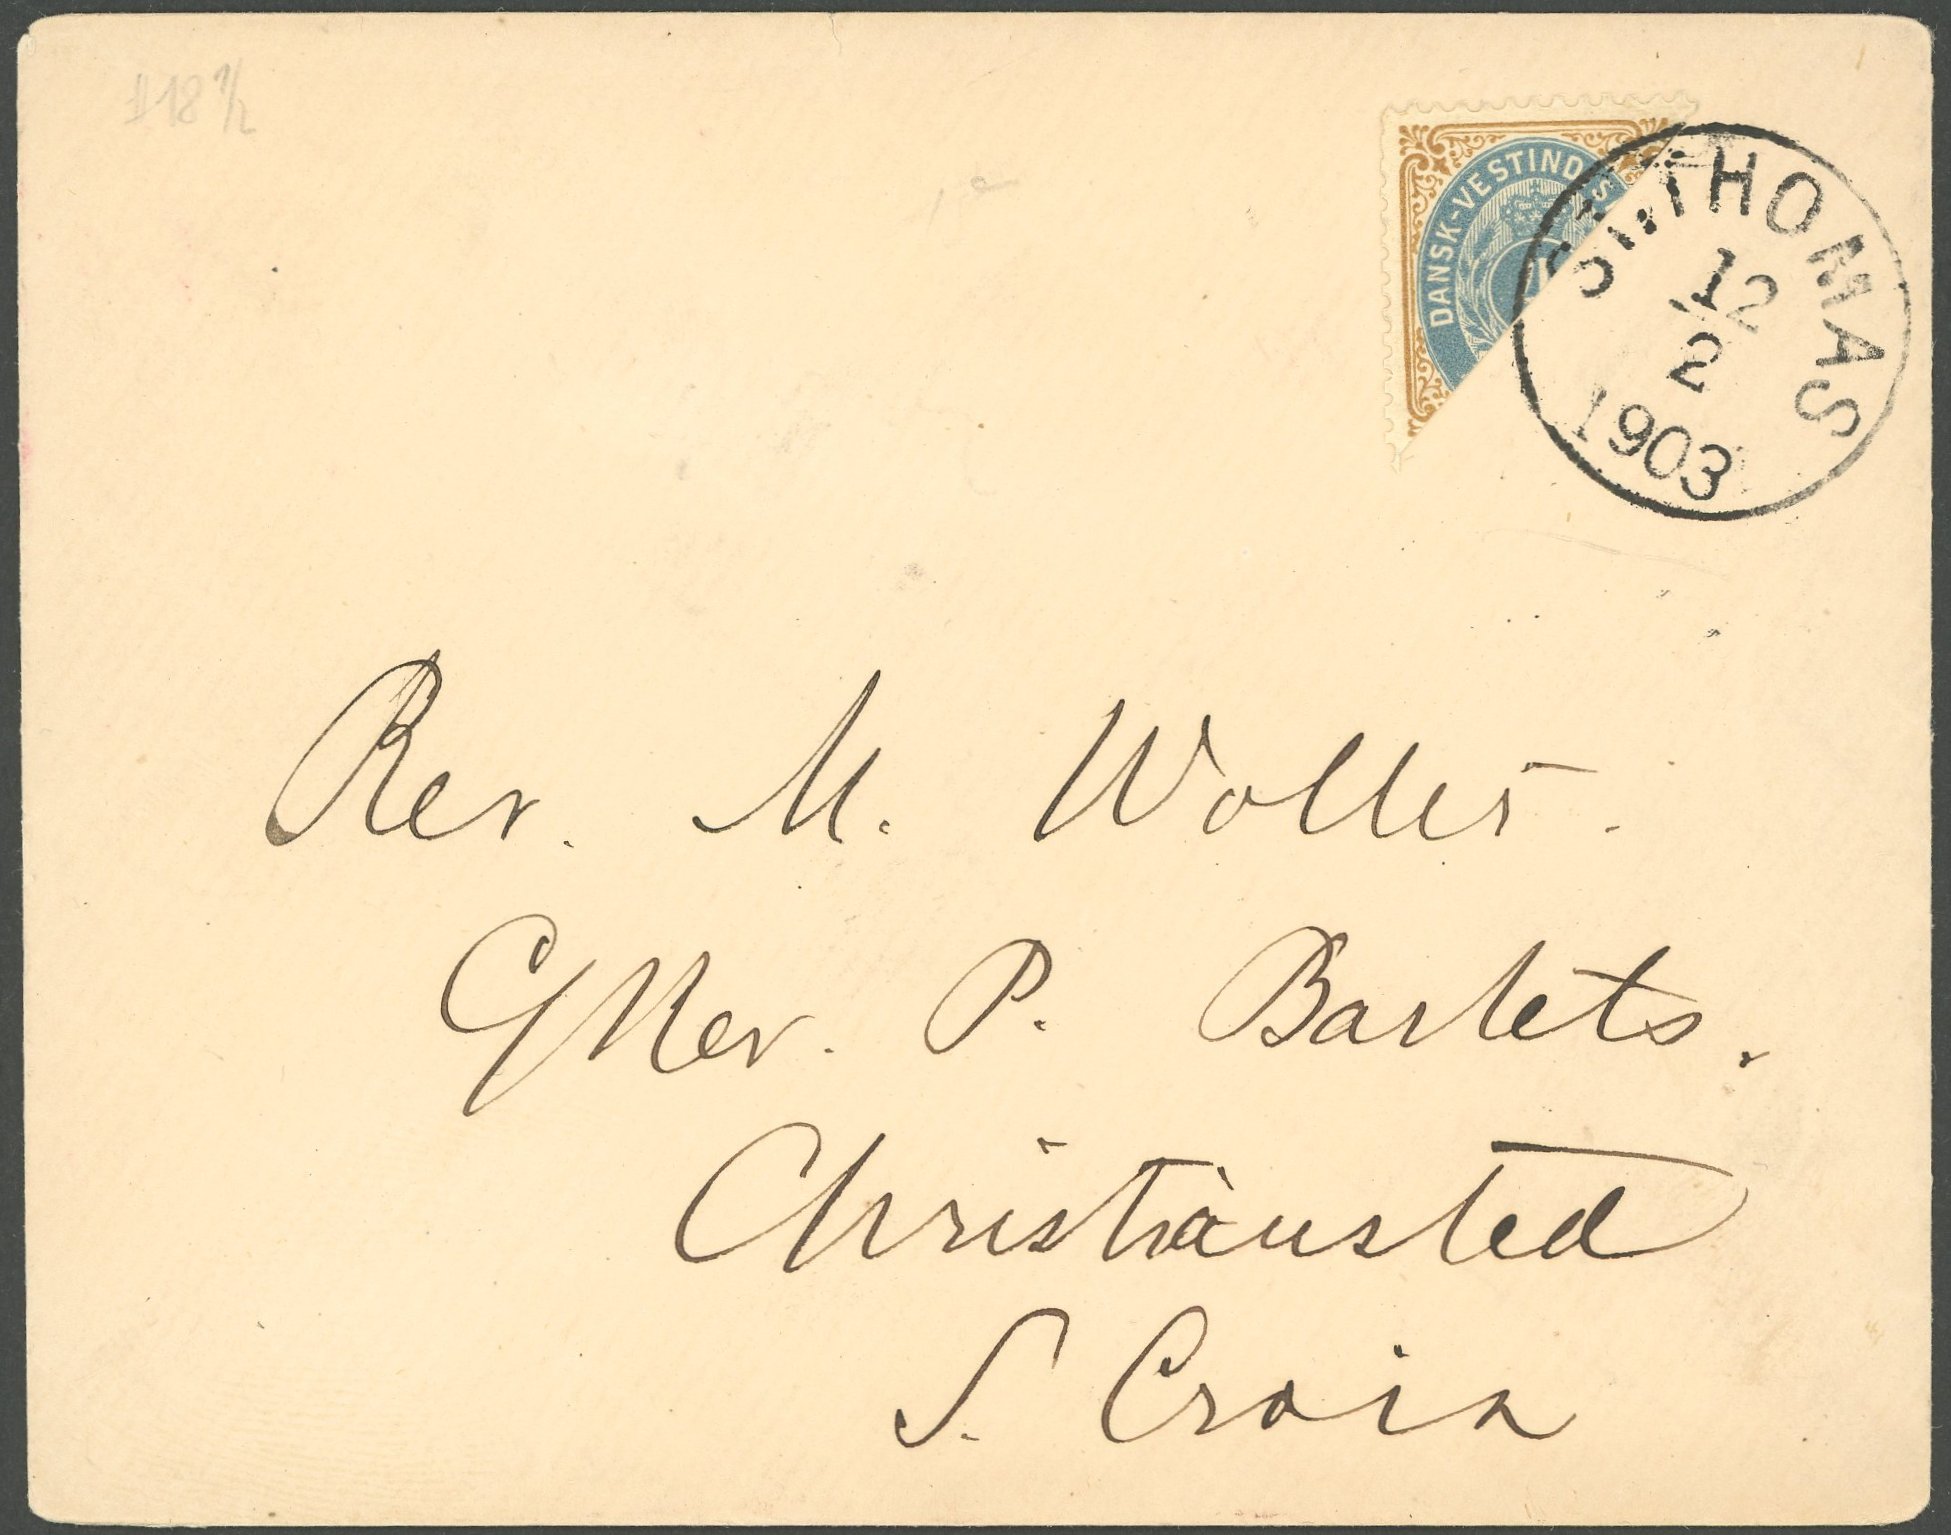 #18 1/2
DANSK-VESTINDIS
ST. THOMAS
12
2
1903
Rev. M. Wolter.
Rev. P. Bartets.
Christiansted
S. Croix